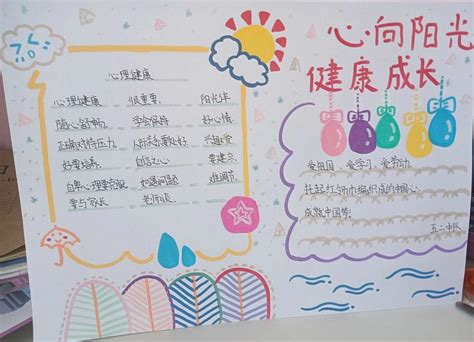 心向阳光
健康成长
心理健康
心理健康 很重要 阳光伴
随心舒畅 学会保持 好心情
正确对待压力
好要培养 自信心
自卑心理要克服 如遇问题 难调节
要与家长 老师谈
爱祖国、爱学习、爱劳动
托起红领巾编织成的中国心
成就中国梦!
五二中队